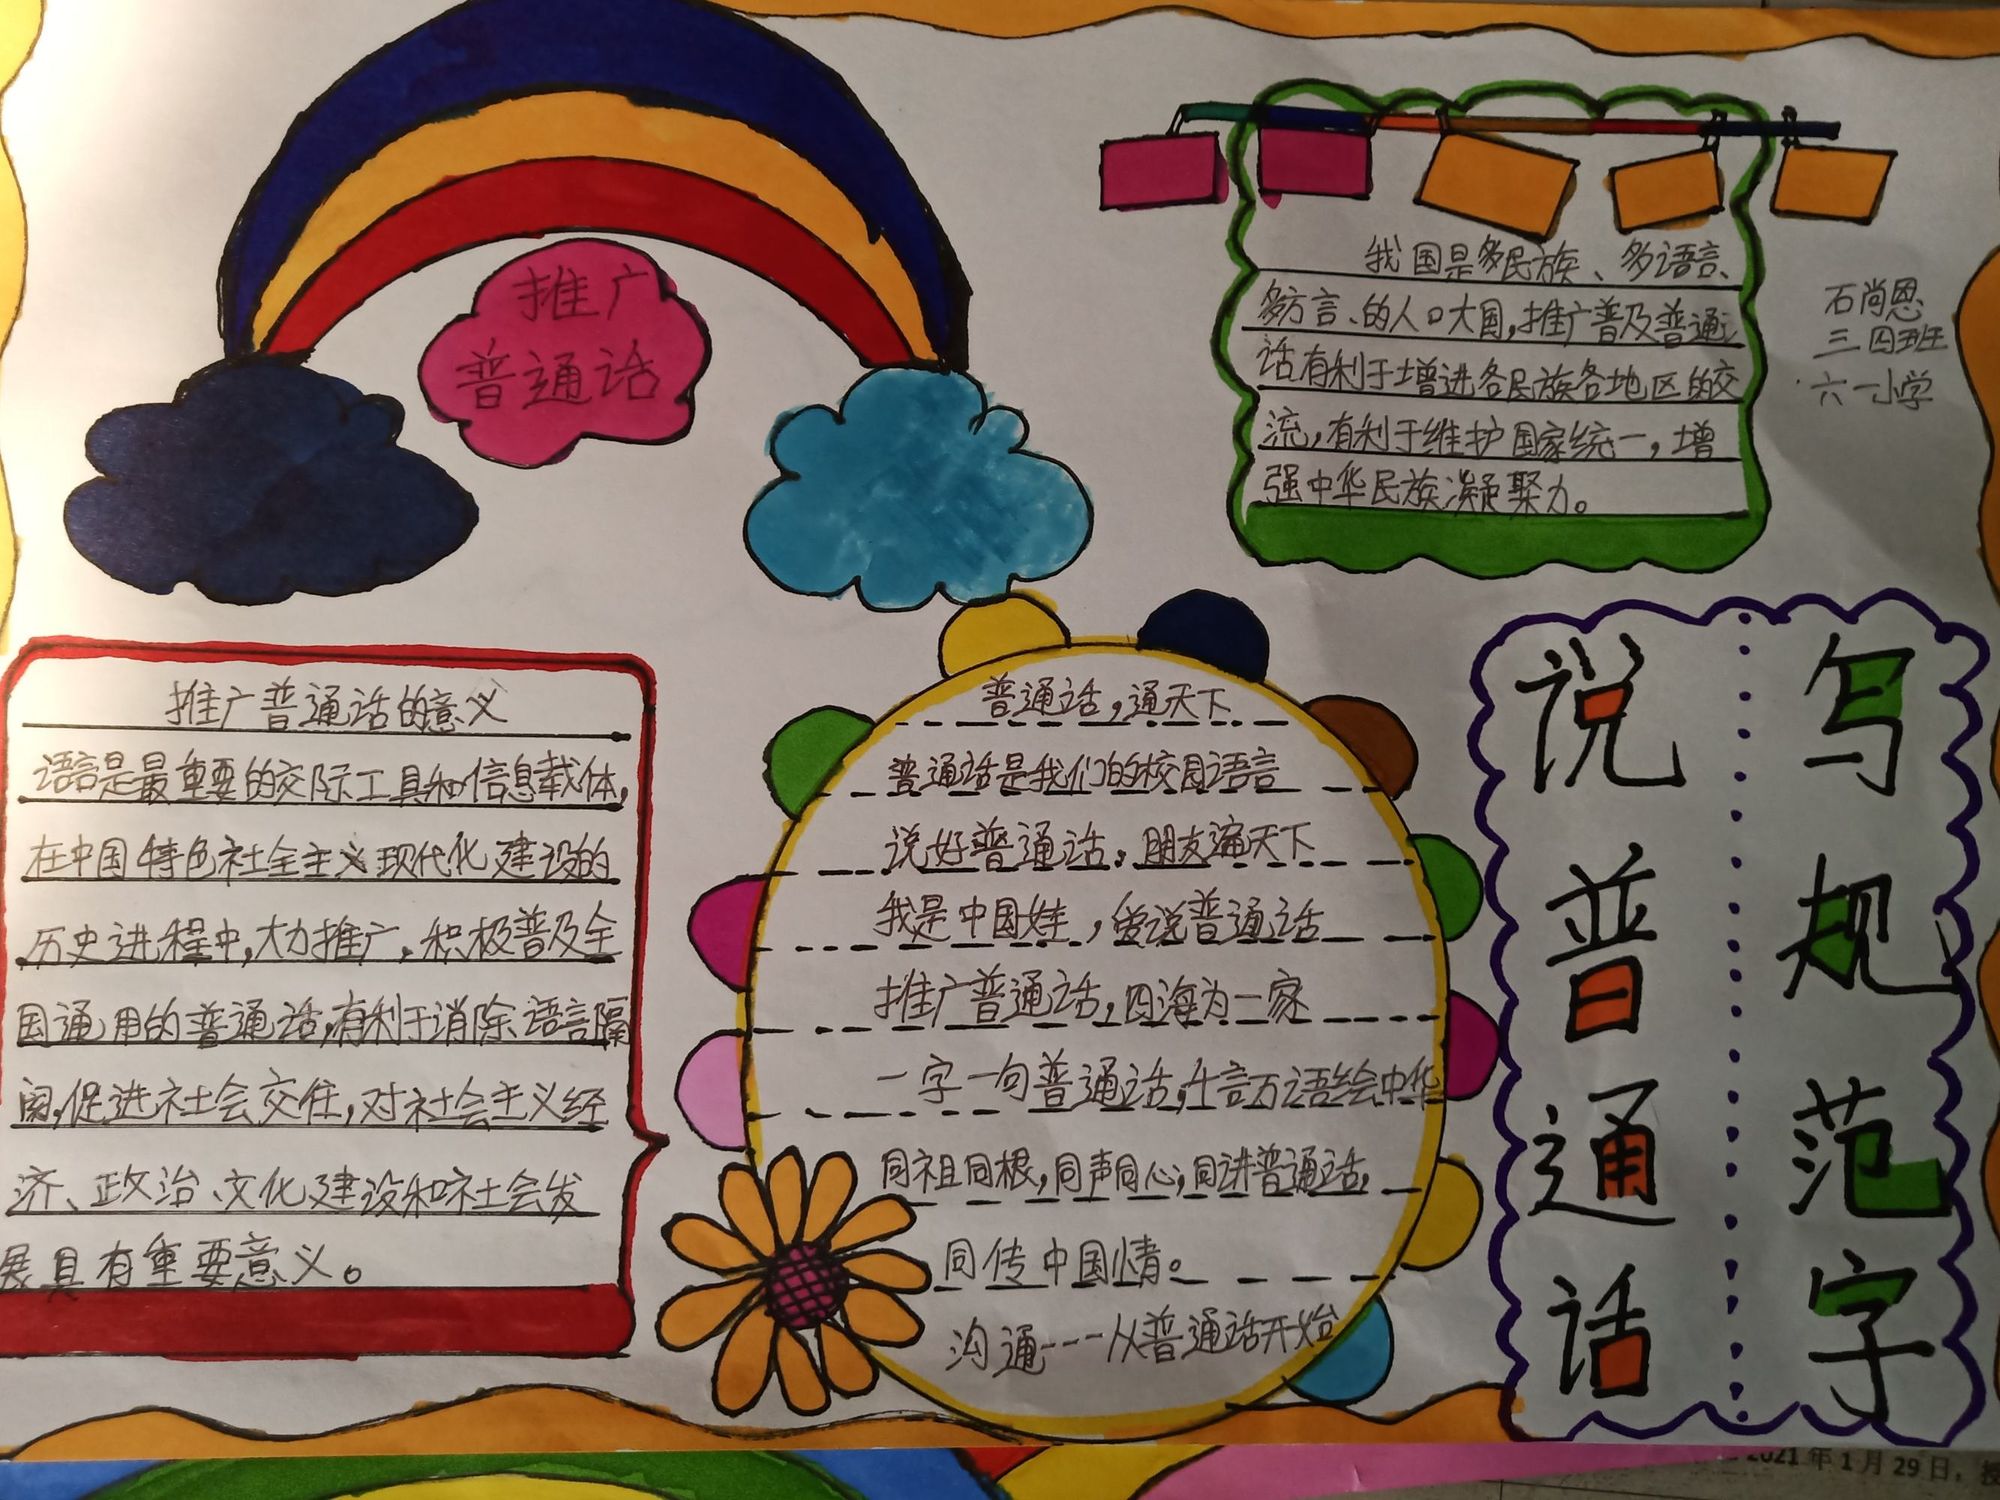 推广
普通话
我国是多民族、多语言、
多方言、的人口大国,推广普及普通
话有利于增进各民族各地区的交
流,有利于维护国家统一,增
强中华民族凝聚力。
石尚恩
三四班
六一小学
推广普通话的意义
语言是最重要的交际工具和信息载体,
在中国特色社会主义现代化建设的
历史进程中,大力推广,积极普及全
国通用的普通话,有利于消除语言隔
阂,促进社会交往,对社会主义经
济、政治、文化建设和社会发
展具有重要意义。
普通话,通天下
普通话是我们的校园语言
说好普通话,朋友遍天下
我是中国娃,爱说普通话
推广普通话,四海为一家
一字一句普通话,千言万语绘中华
同祖同根,同声同心,同讲普通话,
同传中国情。
沟通---从普通话开始
说普通话
写规范字
2021年1月29日,授